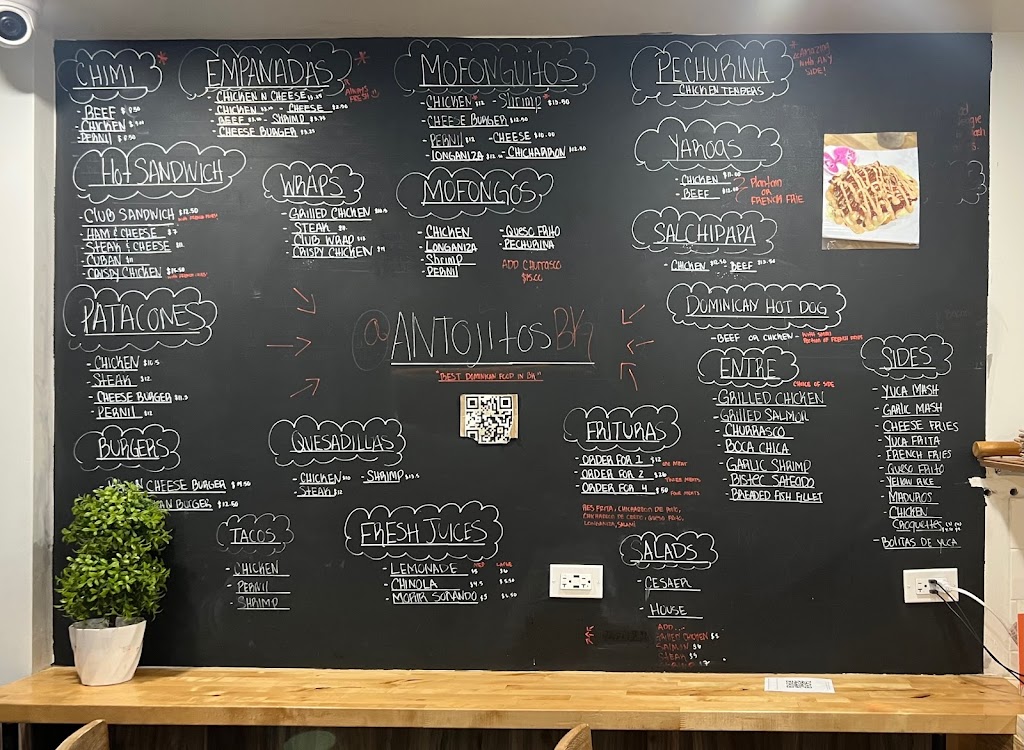 CHIMI *
- BEEF
- CHICKEN
- PERNIL
EMPANADAS *
ALWAYS FRESH
- CHICKEN N CHEESE
- CHICKEN - CHEESE
- BEEF - SHRIMP
- CHEESE BURGER
MOFONGUITOS
- CHICKEN $12 - Shrimp $13.50
- CHEESE BURGER $12.50
- PERNIL $12 - CHEESE $10.00
- LONGANIZA - CHICHARRON $12.50
PECHURINA
CHICKEN TENDERS
* AMAZING
with ANY
SIDE!
HOT SANDWICH
- CLUB SANDWICH $12.50
with FRENCH FRIES
- HAM & CHEESE $7
- STEAK & CHEESE $11
- CUBAN $11
- CRISPY CHICKEN
with FRENCH FRIES
WRAPS
- GRILLED CHICKEN
- STEAK
- CLUB WRAP
- CRISPY CHICKEN
MOFONGOS
- CHICKEN
- LONGANIZA
- Shrimp
- PERNIL
- QUESO FRITO
- PECHURINA
ADD CHURRASCO
$15.00
YAROAS
- CHICKEN $11.00
- BEEF $12.00
Plantain
OR
FRENCH FRIE
SALCHIPAPA
- CHICKEN $12.50 BEEF $13.50
PATACONES
- CHICKEN $10.5
- STEAK $12
- CHEESE BURGER $11.5
- PERNIL $12
@ANTOJITOSBK
"BEST DOMINICAN FOOD IN BK"
DOMINICAN HOT DOG
- BEEF OR CHICKEN -
WITH SMALL
PORTION OF FRENCH FRIES
ENTRE
CHOICE OF SIDE
- GRILLED CHICKEN
- GRILLED SALMON
- CHURRASCO
- BOCA CHICA
- GARLIC SHRIMP
- BISTEC SALTEADO
- BREADED FISH FILLET
SIDES
- YUCA MASH
- GARLIC MASH
- CHEESE FRIES
- YUCA FRITA
- FRENCH FRIES
- QUESO FRITO
- YELLOW RICE
- MADUROS
- CHICKEN
CROQUETTES
- BOLITAS DE YUCA
BURGERS
CHEESE BURGER
BURGER $12.50
QUESADILLAS
- CHICKEN $10 - SHRIMP $13.5
- STEAK $12
FRITURAS
- ORDER FOR 1 $12 ONE MEAT
- ORDER FOR 2 $26 THREE MEATS
- ORDER FOR 4 $50 FOUR MEATS
RES FRITA, CHICHARRON DE POLLO,
CHICHARRON DE CERDO, QUESO FRITO,
LONGANIZA, SALAMI
TACOS
- CHICKEN
- PERNIL
- SHRIMP
FRESH JUICES
MED LARGE
- LEMONADE $5 $6
- CHINOLA $4.5 $5.50
- MORIR SONANDO $5 $6.50
SALADS
- CESAER
- HOUSE
ADD...
GRILLED CHICKEN $5
SALMON $6
STEAK $5